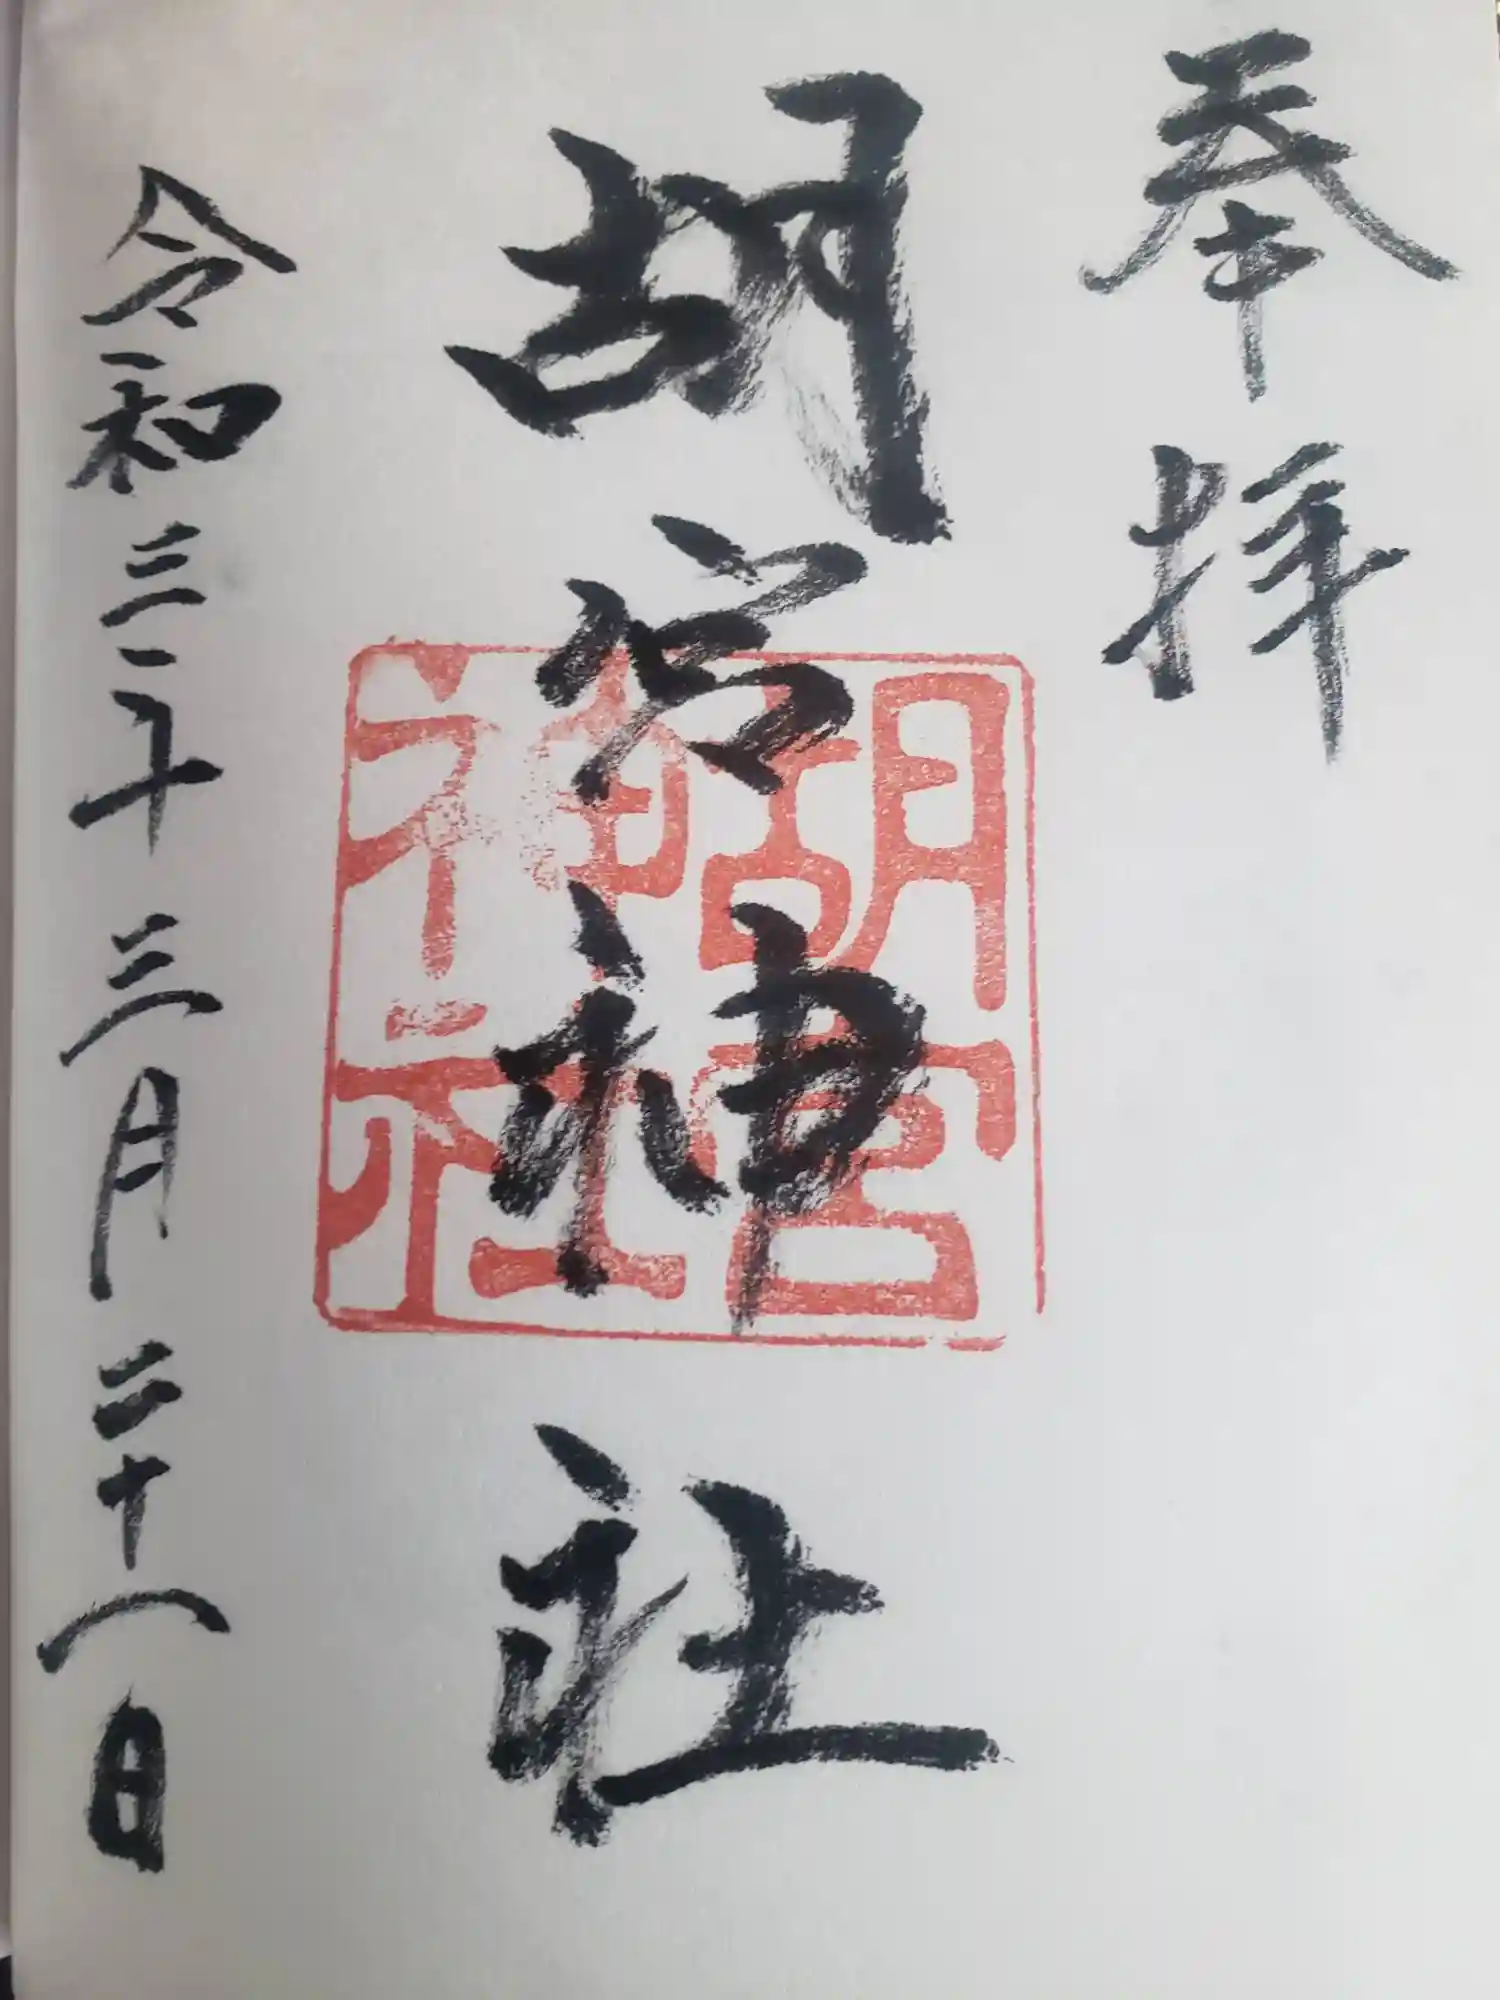 奉拝
胡宮神社
胡宮
神社
令和三年三月二十八日